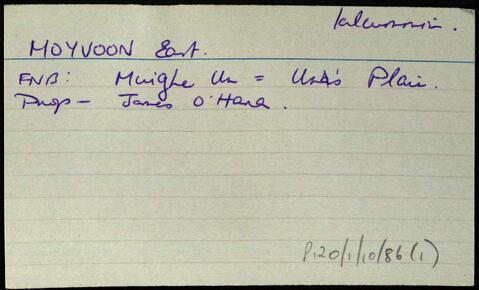 Kilcummin.
MOYVOON East.
FNB: Muighe Un = Una's Plain.
Prop - James O'Hara.
P120/1/10/86(1)